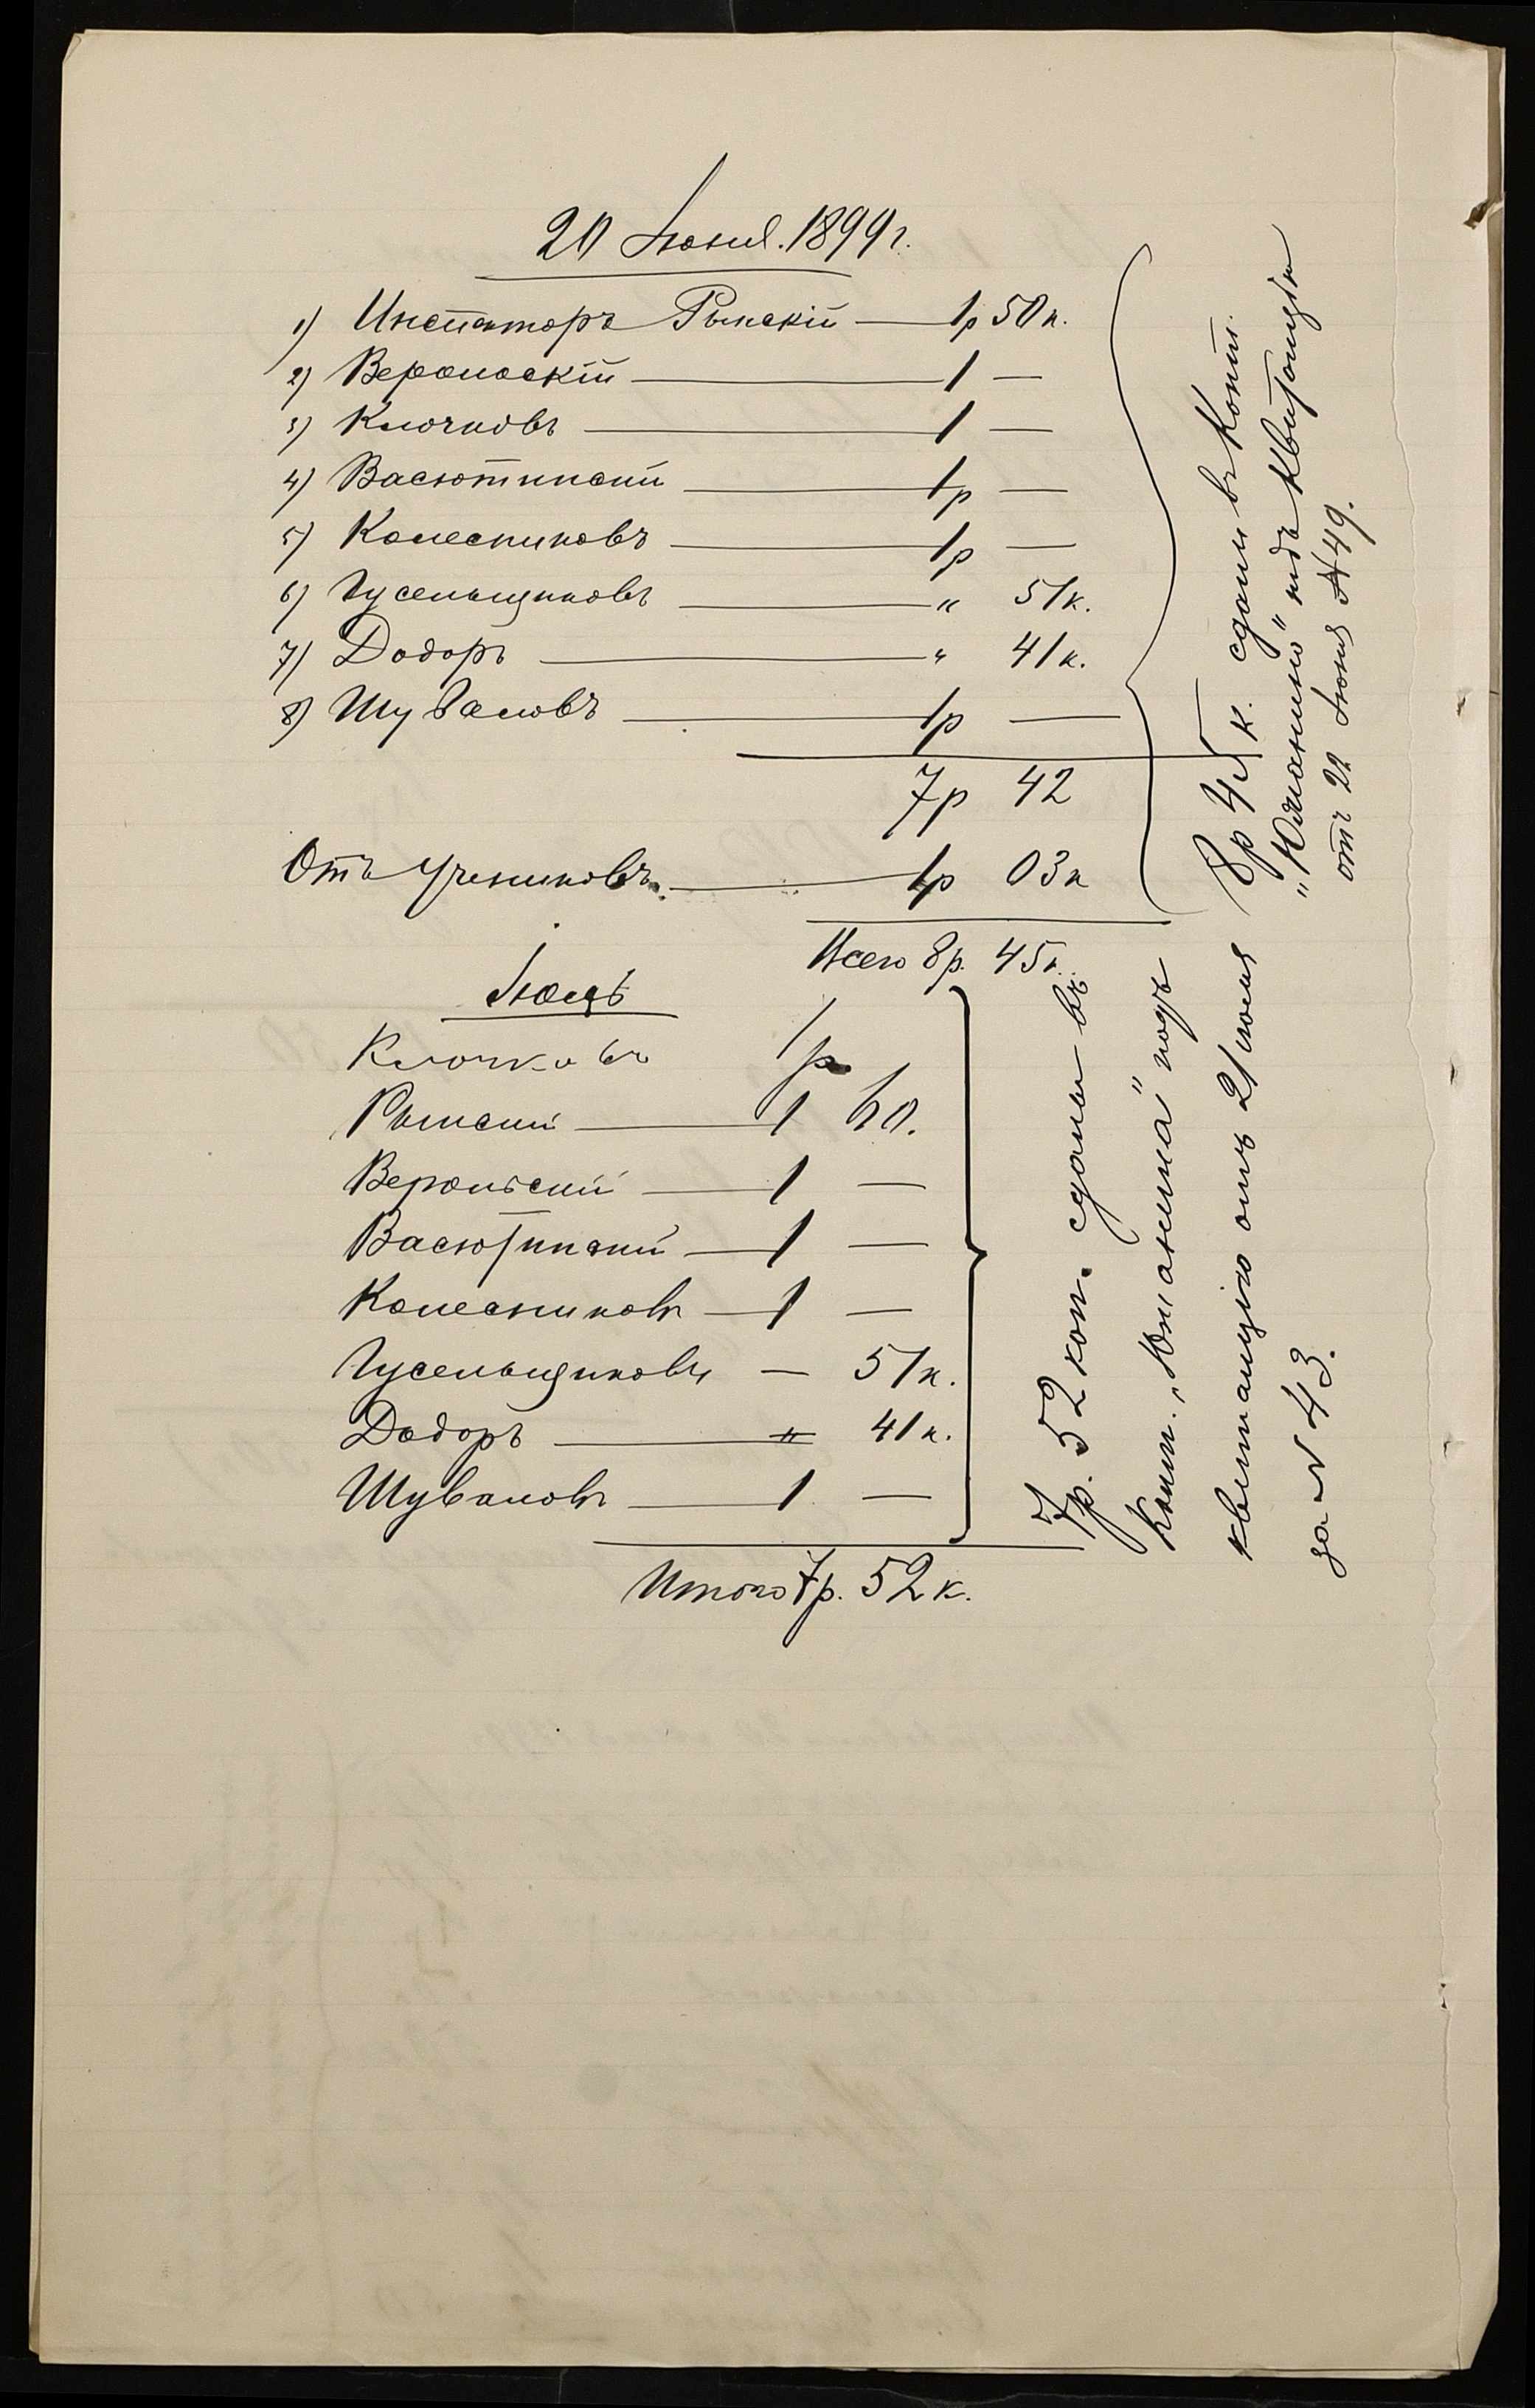 20 Іюня. 1899 г.
1) Инспекторъ Рынскій — 1р 50 к.
2) Верольскій — 1 —
3) Клочковъ — 1 —
4) Васютинскій — 1р —
5) Колесниковъ — 1р —
6) Гусельщиковъ — " 51 к.
7) Додоръ — " 41 к.
8) Шуваловъ — 1р —
7р 42
Отъ учениковъ — 1р 03 к
Всего 8р. 45 к.
8р 45 к. сданы въ Конт.
" подъ квитанцію
отъ 22 Іюня № 49.
Іюль
Клочковъ 1р.
Рынскій — 1 60.
Верольскій — 1 —
Васютинскій — 1 —
Колесниковъ — 1 —
Гусельщиковъ — 51 к.
Додоръ — " 41 к.
Шуваловъ — 1 —
Итого 7р. 52 к.
7р. 52 коп. сданы въ
Конт. " подъ
квитанцію отъ 21 іюля
за № 43.